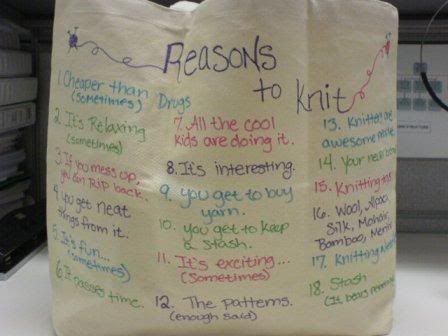 Reasons
to Knit
1. Cheaper than Drugs
(sometimes)
2. It's Relaxing
(sometimes)
3. If you mess up,
you can Rip back.
4. You get neat
things from it.
5. It's fun...
(sometimes)
6. It passes time.
7. All the cool
kids are doing it.
8. It's interesting.
9. you get to buy
yarn.
10. you get to keep
a stash.
11. It's exciting...
(Sometimes)
12. The patterns.
(enough said)
13. Knitters are
awesome people
14. Your
15. Knitting
16. Wool, Alpaca,
Silk, Mohair,
Bamboo,
17. Knitting
18. Stash
(It bears